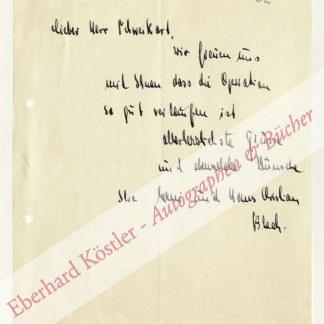 Lieber Herr Schweikart,
wir freuen uns
mit Ihnen dass die Operation
so gut verlaufen ist
allerherzlichste Grüsse
und Wünsche
Ihre und Hans Christian
Blech.
Eberhard Köstler - Autographen & Bücher